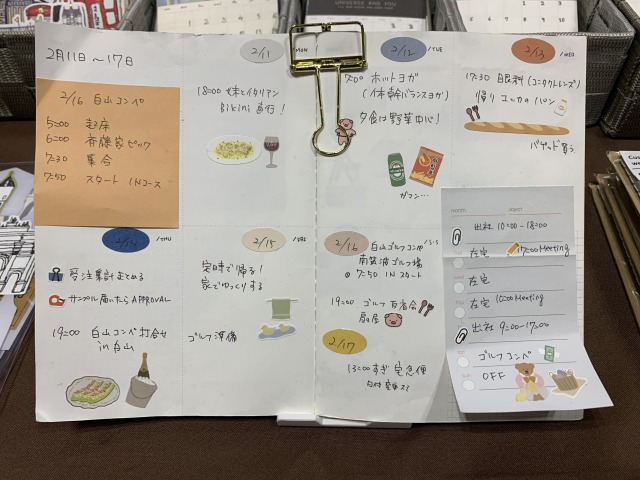 2月11日～17日
2/16 白山コンペ
5:00 起床
6:00 斉藤家ピック
7:30 集合
7:50 スタート INコース
2/11 MON
18:00 妹とイタリアン
Bikini 直行!
2/12 /TUE
7:00 ホットヨガ
(体幹バランスヨガ)
夕食は野菜中心!
ガマン…
2/13 /WED
17:30 眼科(コンタクトレンズ)
帰り エシカのパン
バゲット買う
2/14 /THU
受注集計まとめる
サンプル届いたらAPPROVAL
19:00 白山コンペ打合せ
in 白山
2/15 /FRI
定時で帰る!
家でゆっくりする
ゴルフ準備
2/16 白山ゴルフコンペ
南筑波ゴルフ場
@ 7:50 INスタート
19:00 ゴルフ百名会
扇屋
2/17
13:00すぎ 宅急便
出社 10:00-18:00
在宅 17:00Meeting
在宅
在宅 15:00Meeting
出社 9:00-17:00
ゴルフコンペ
OFF